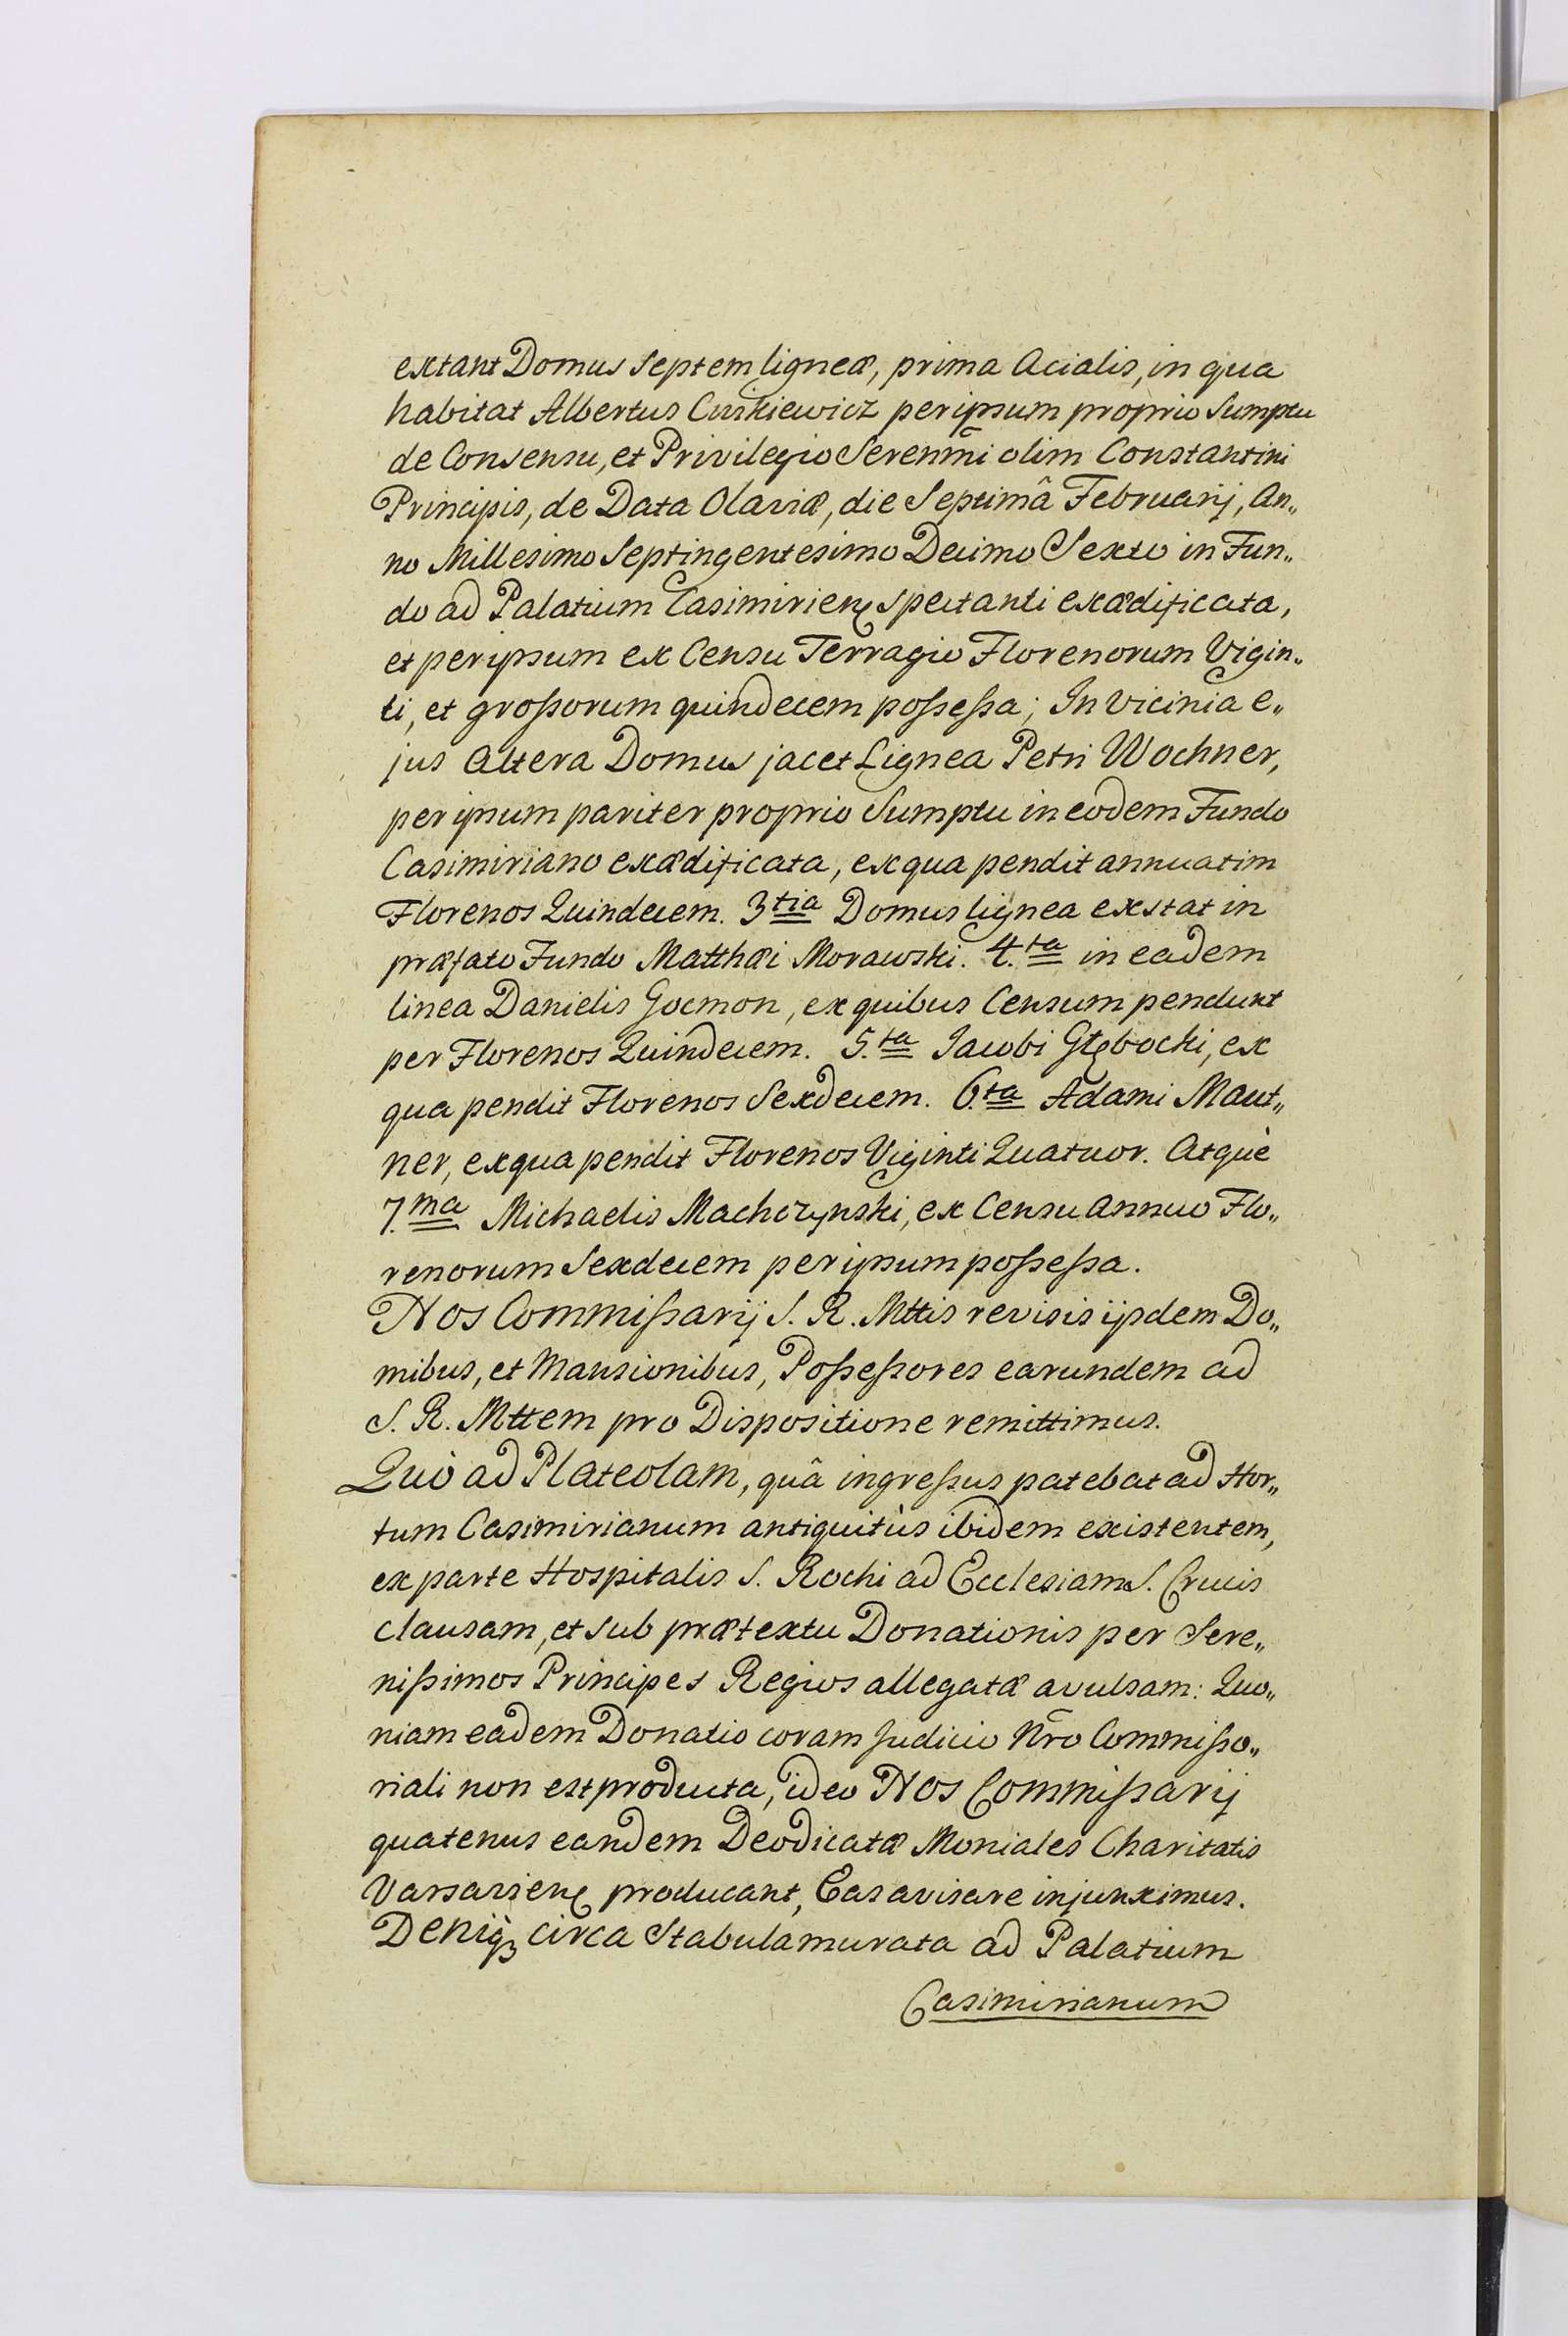 extant Domus Septem ligneæ, prima Acialis, in qua
habitat Albertus Curkiewicz per ipsum proprio Sumptu
de Consensu, et Privilegio Serenm̄i olim Constantini
Principis, de Data Olaviæ, die Septimâ Februarij, An„
no Millesimo Septingentesimo Decimo Sexto in Fun„
do ad Palatium Casimirienę spectanti exædificata,
et per ipsum ex Censu Terragio Florenorum Vigin„
ti, et großorum quindecem poßeßa; In vicinia e„
jus Altera Domus jacet Lignea Petri Wochner,
per ipsum pariter proprio Sumptu in eodem Fundo
Casimiriano exædificata, ex qua pendit annuatim
Florenos Quindecem. 3tia Domus lignea exstat in
præfato Fundo Matthæi Morawski. 4.ta in eadem
linea Danielis Gocmon, ex quibus Censum pendunt
per Florenos Quindecem. 5.ta Jacobi Głębocki, ex
qua pendit Florenos Sexdecem. 6.ta Adami Maut„
ner, ex qua pendit Florenos Viginti Quatuor. Atquè
7.ma Michaelis Machczynski, ex Censu annuo Flo„
renorum Sexdecem per ipsum poßeßa.
Nos Commißarij S. R. Mttis revisis ijsdem Do„
mibus, et Mansionibus, Poßeßores earundem ad
S. R. Mttem pro Dispositione remittimus.
Quò ad Plateolam, quâ ingreßus patebat ad Hor„
tum Casimirianum antiquitùs ibidem existentem,
ex parte Hospitalis S. Rochi ad Ecclesiam S. Crucis
clausam, et sub prætextu Donationis per Sere„
nißimos Principes Regios allegatæ avulsam: Quo„
niam eadem Donatio coram Judicio Nr̄o Commißo„
riali non est producta, ideo Nos Commißarij
quatenus eandem Deodicatæ Moniales Charitatis
Varsavienę producant, Eas avisare injunximus.
Deniq̀ꝫ circa Stabula murata ad Palatium
Casimirianum